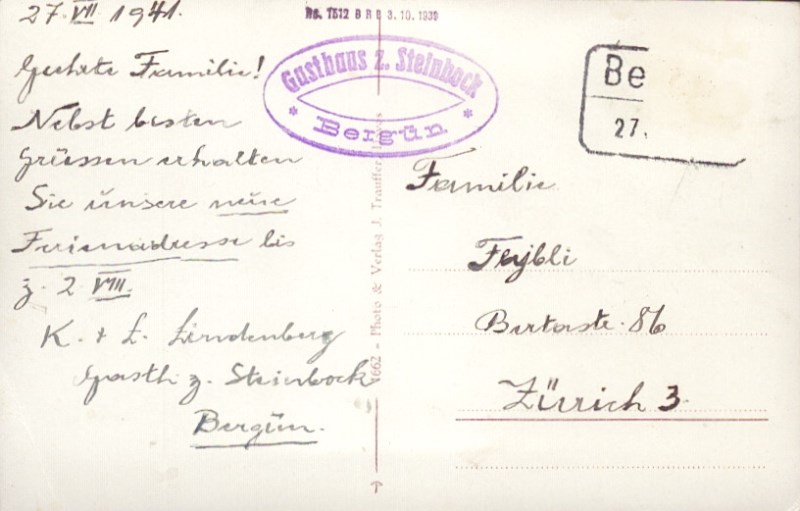 27. VII 1941.
Geehrte Familie!
Nebst besten
Grüssen erhalten
Sie unsere neue
Ferienadresse bis
z. 2 VIII.
K. + E. Lindenberg
Gasth z. Steinbock
Bergün.
No. 7512 B R B 3. 10. 1939
Gasthaus z. Steinbock
* Bergün. *
4662 - Photo & Verlag J. Trauffer
Be
27.
Familie
Bertastr. 86
Zürich 3